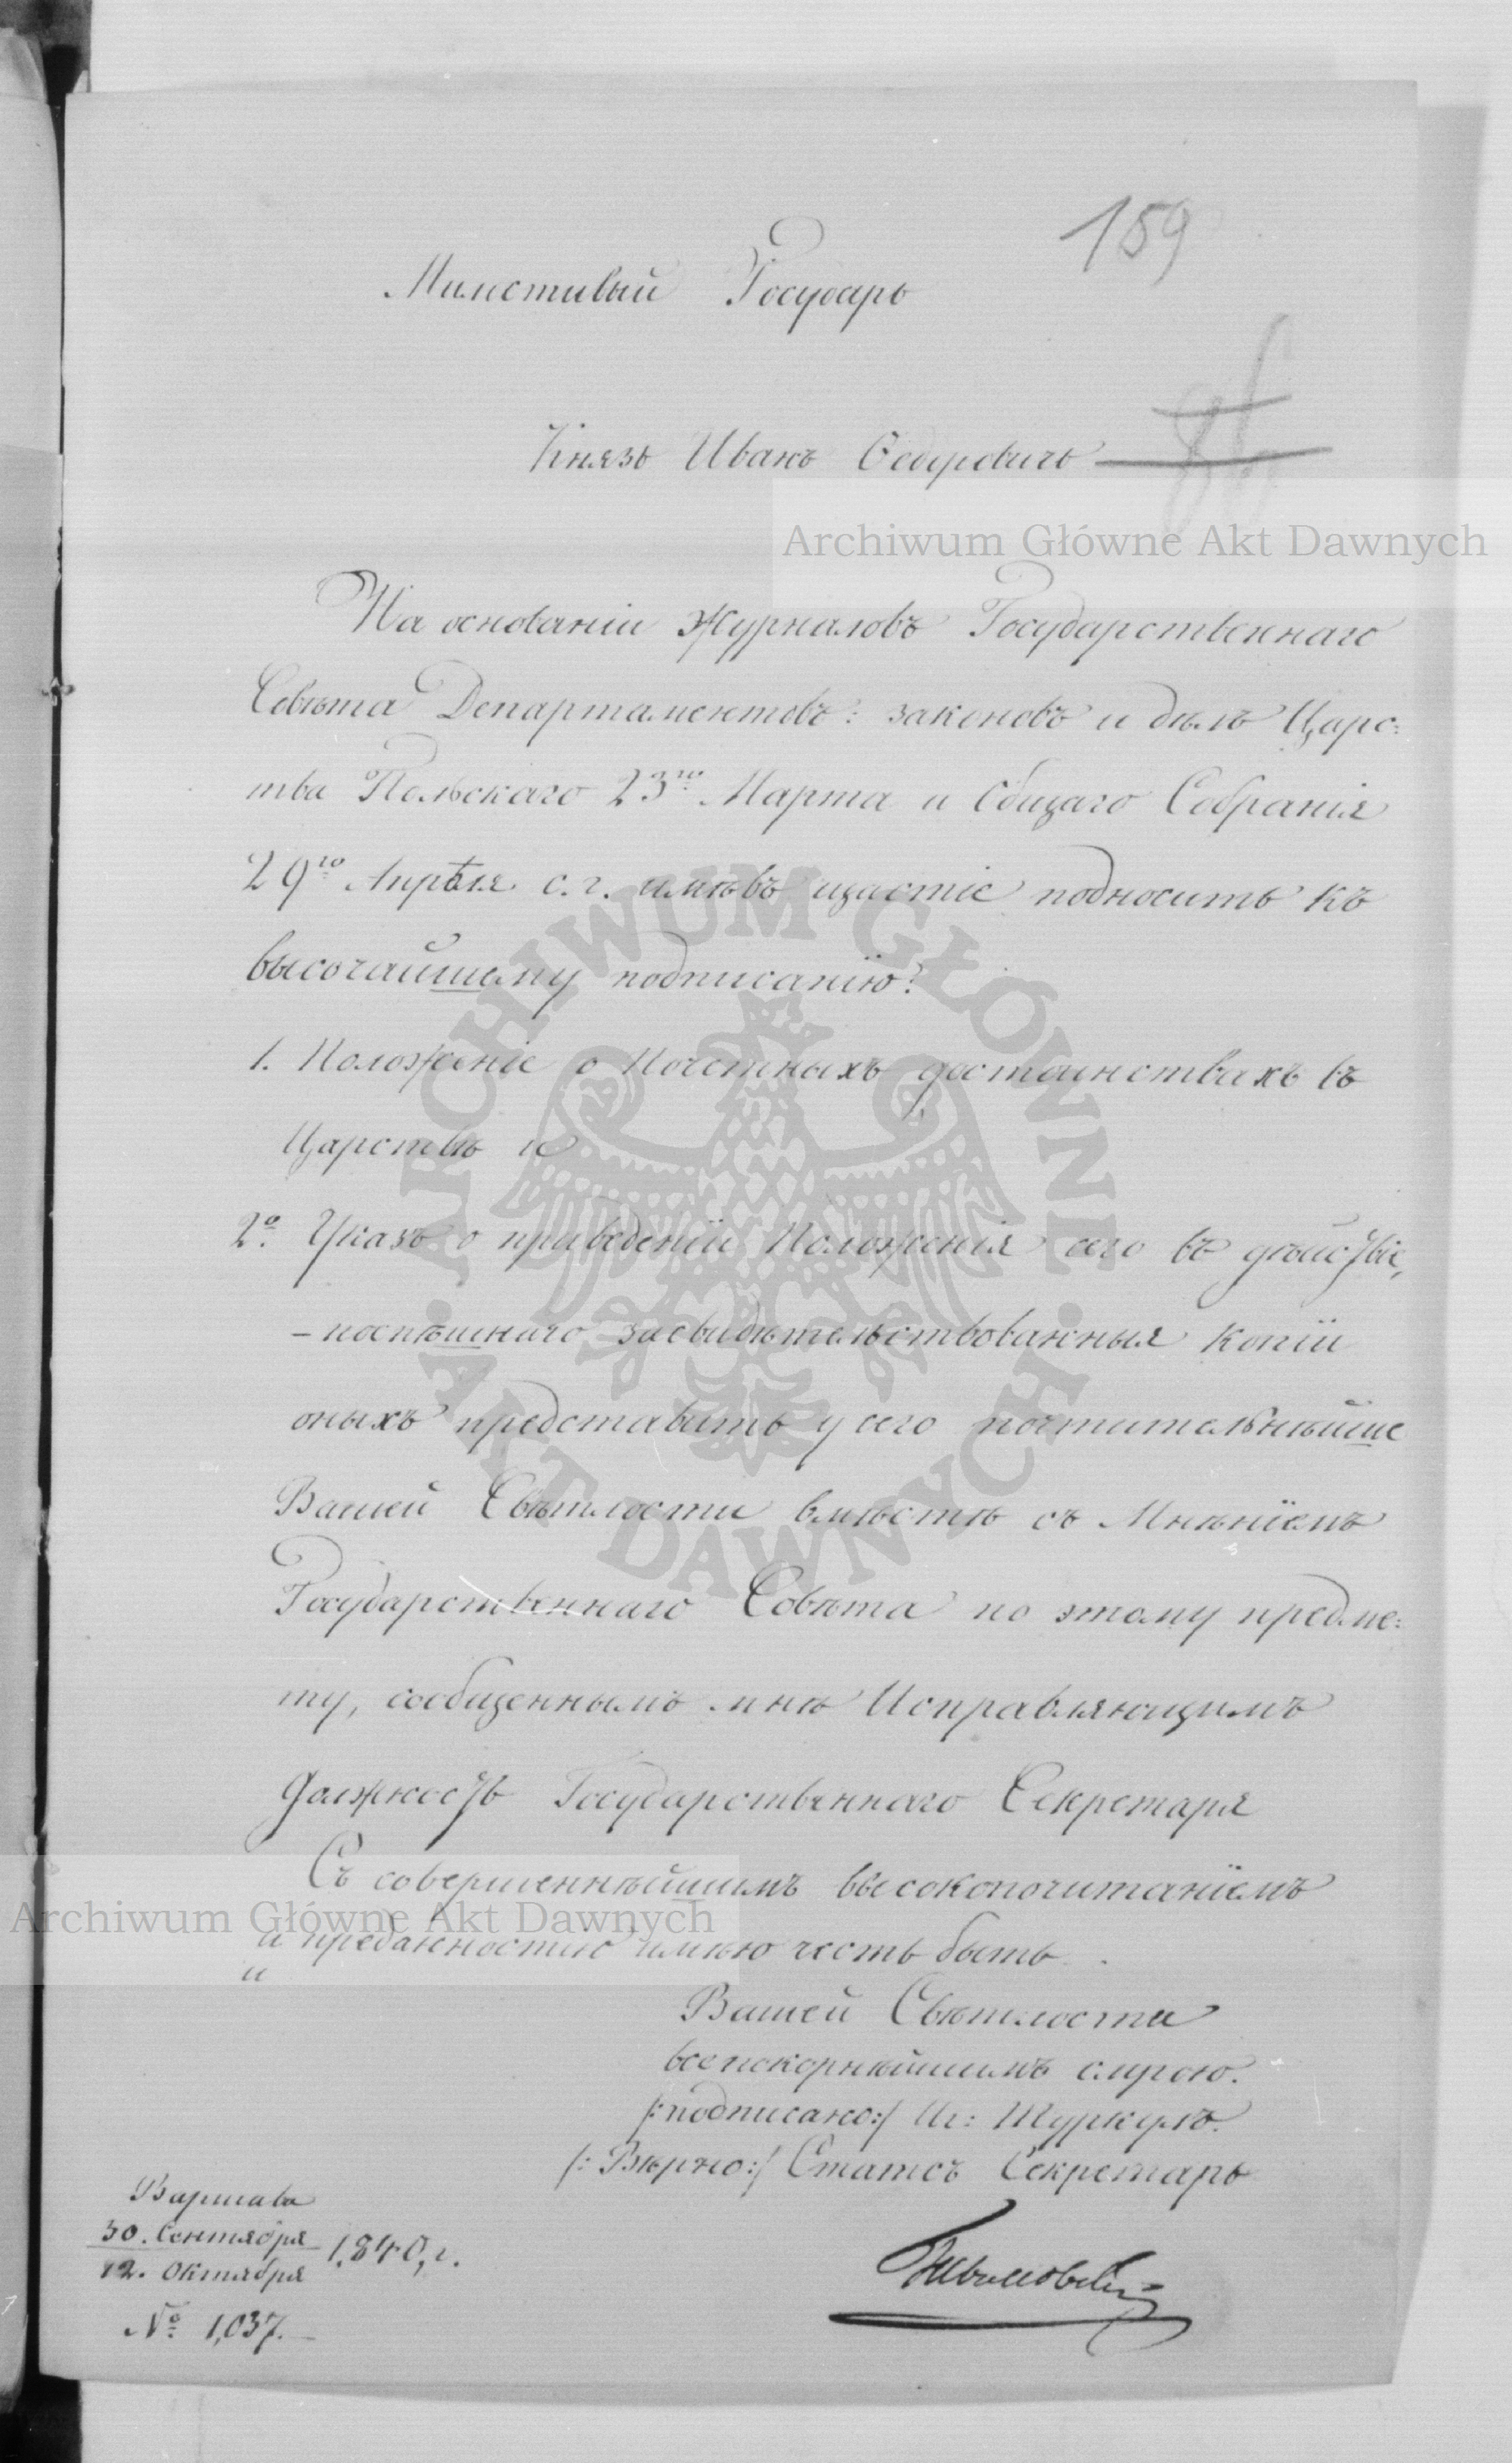 159
Милостивый Государь
86
Князь Иванъ Ѳедоровичь
Archiwum Główne Akt Dawnych
На основаніи Журналовъ Государственнаго
Совѣта Департаментовъ: законовъ и дѣлъ Царс:
тва Польскаго 23го Марта и Общаго Собранія
29го Апрѣля с. г. имѣвъ щастіе подносить къ
высочайшему подписанію:
1. Положеніе о Почетныхъ достоинствахъ въ
Царствѣ и
2º. Указъ о приведеніи Положенія сего въ дѣйствіе,
– поспѣшнаго засвидѣтельствованныя копіи
оныхъ представить у сего почтительнѣйше
Вашей Свѣтлости вмѣстѣ съ Мнѣніемъ
Государственнаго Совѣта по этому предме:
ту, сообщеннымъ мнѣ Исправляющимъ
Должность Государственнаго Секретаря
Съ совершеннѣйшимъ высокопочитаніемъ
Archiwum Główne Akt Dawnych
и преданностію имѣю честь быть
и
Вашей Свѣтлости
всепокорнѣйшимъ слугою.
/:подписано:/ Иг: Туркулъ.
/: Вѣрно:/ Статсъ Секретарь
Варшава
30. Сентября
12. Октября
1,840, г.
№ 1,037.
ARCHIWUM GŁÓWNE
AKT DAWNYCH